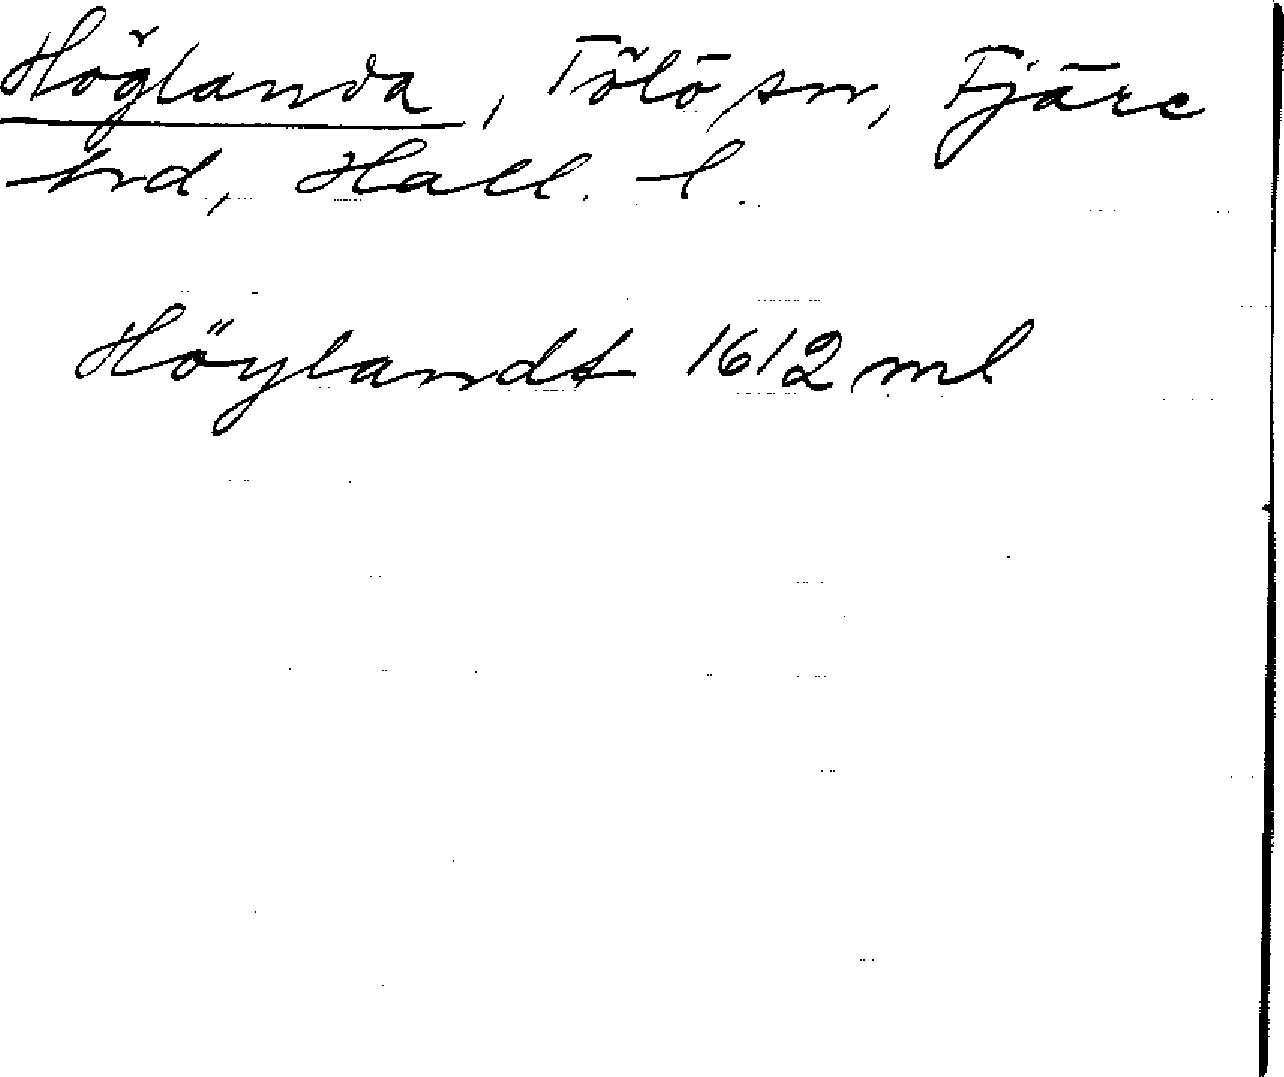 Höglanda, Tölö sn, Fjäre
hrd, Hall. l.
Höylandt 1612 ml